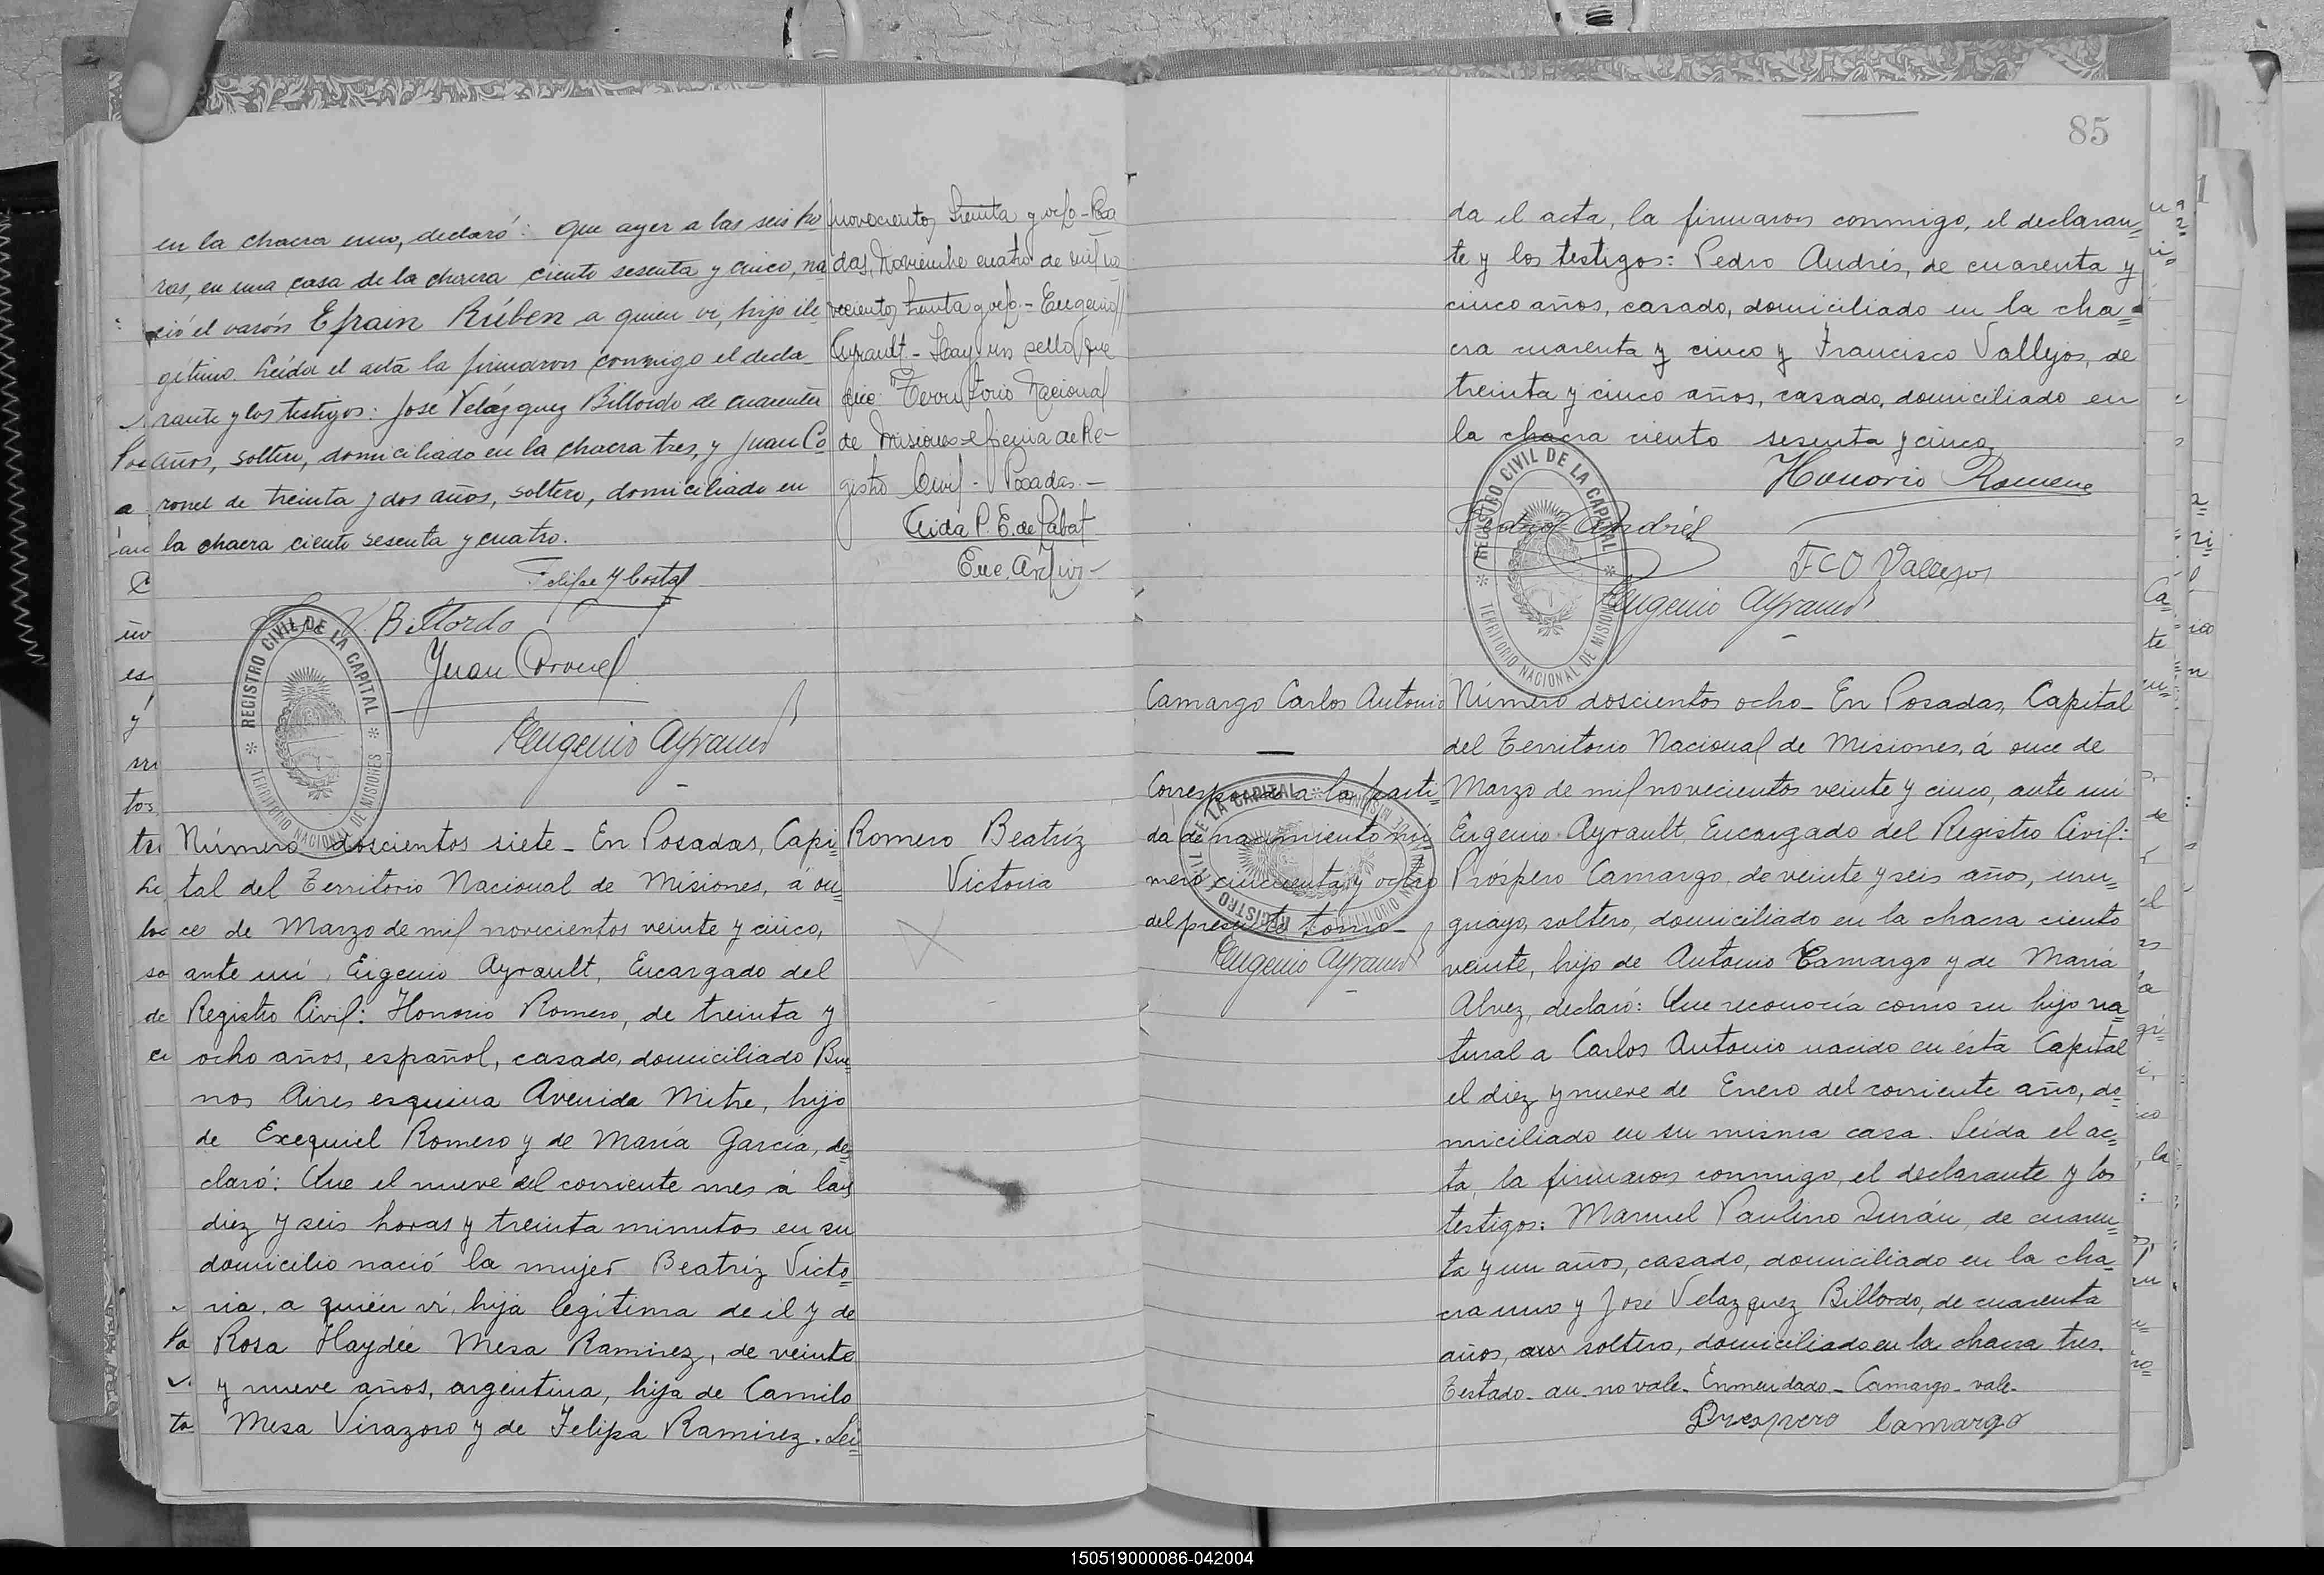 en la chacra uno, declaró: que ayer a las seis ho
ras, en una casa de la chacra ciento sesenta y cinco, na
ció el varón Efrain Rúben a quien vi, hijo ile
gítimo. Leída el acta la firmaron conmigo el decla
rante y los testigos: José Velázquez Billordo de cuarenta
años, soltero, domiciliado en la chacra tres, y Juan Co
ronel de treinta y dos años, soltero, domiciliado en
la chacra ciento sesenta y cuatro.
Felipe Y Costa
V. Billordo
Juan Coronel
Eugenio Ayrault
REGISTRO CIVIL DE LA CAPITAL
TERRITORIO NACIONAL DE MISIONES
novecientos treinta y ocho - Posa
das, Noviembre cuatro de mil no
vecientos treinta y ocho - Eugenio
Ayrault - Hay un sello que
dice: Territorio Nacional
de Misiones - Oficina de Re-
gistro Civil - Posadas. -
Aida P. E. de Labat
Enc. Archivo -
Número doscientos siete - En Posadas, Capi=
tal del Territorio Nacional de Misiones, á on
ce de Marzo de mil novecientos veinte y cinco,
ante mi, Eigenio Ayrault, Encargado del
Registro Civil: Honorio Romero, de treinta y
ocho años, español, casado, domiciliado Bue
nos Aires esquina Avenida Mitre, hijo
de Exequiel Romero y de María García, de=
claró: Que el nueve del corriente mes á las
diez y seis horas y treinta minutos en su
domicilio nació la mujer Beatriz Victo=
ria, a quién ví, hija legítima de él y de
Rosa Haydée Mesa Ramirez, de veinte
y nueve años, argentina, hija de Camilo
Mesa Virazoro y de Felipa Ramirez. Leí=
Romero Beatríz
Victoria
85
da el acta, la firmaron conmigo, el declaran=
te y los testigos: Pedro Andrés, de cuarenta y
cinco años, casado, domiciliado en la cha=
cra cuarenta y cinco y Francisco Vallejos, de
treinta y cinco años, casado, domiciliado en
la chacra ciento sesenta y cinco.
Honorio Romero
Pedro Andrés
FCO Vallejos
Eugenio Ayrault
REGISTRO CIVIL DE LA CAPITAL
TERRITORIO NACIONAL DE MISIONES
Camargo Carlos Antonio
Corresponde a la parti=
da de nacimiento nú
mero cincuenta y ocho
del presente tomo -
Eugenio Ayrault
Número doscientos ocho - En Posadas, Capital
del Territorio Nacional de Misiones, á once de
Marzo de mil novecientos veinte y cinco, ante mi
Eugenio Ayrault, Encargado del Registro Civil:
Próspero Camargo, de veinte y seis años, uru=
guayo, soltero, domiciliado en la chacra ciento
veinte, hijo de Antonio Camargo y de María
Alvez, declaró: Que reconocía como su hijo na=
tural a Carlos Antonio nacido en ésta Capital
el diez y nueve de Enero del corriente año, do=
miciliado en su misma casa. Leída el ac=
ta, la firmaron conmigo, el declarante y los
testigos: Manuel Paulino Durán, de cuaren=
ta y un años, casado, domiciliado en la cha=
cra uno y José Velazquez Billordo, de cuarenta
años, au soltero, domiciliado en la chacra tres.
Testado - au - no vale - Enmendado - Camargo - vale -
Prospero Camargo
150519000086-042004